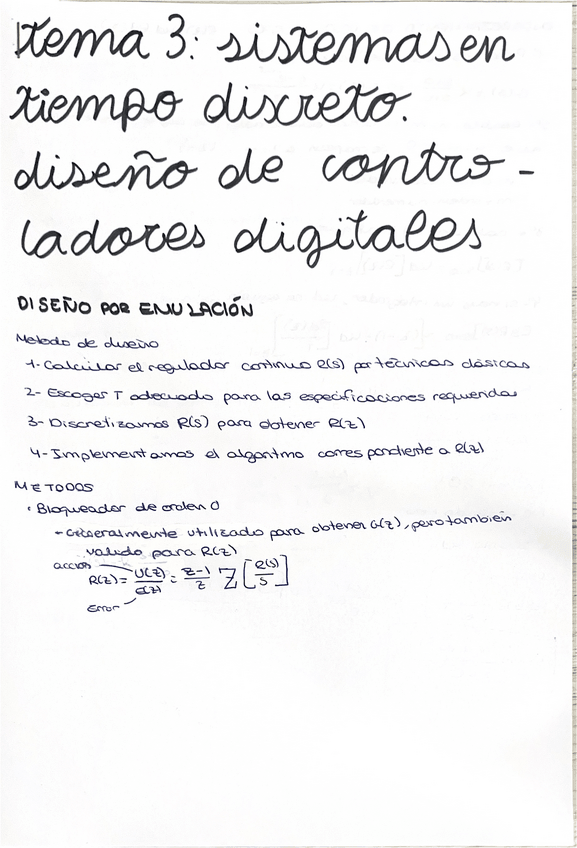 tema 3: sistemas en
tiempo discreto.
diseño de contro-
ladores digitales
DISEÑO POR EMULACIÓN
Metodo de diseño
1- Calcular el regulador continuo R(s) por técnicas clásicas
2- Escoger T adecuado para las especificaciones requeridas
3- Discretizamos R(s) para obtener R(z)
4- Implementamos el algoritmo correspondiente a R(z)
METODOS
· Bloqueador de orden 0
- Generalmente utilizado para obtener G(z), pero también
valido para R(z)
acción
R(z) = U(z)/E(z) = z-1/z Z[R(s)/s]
Error